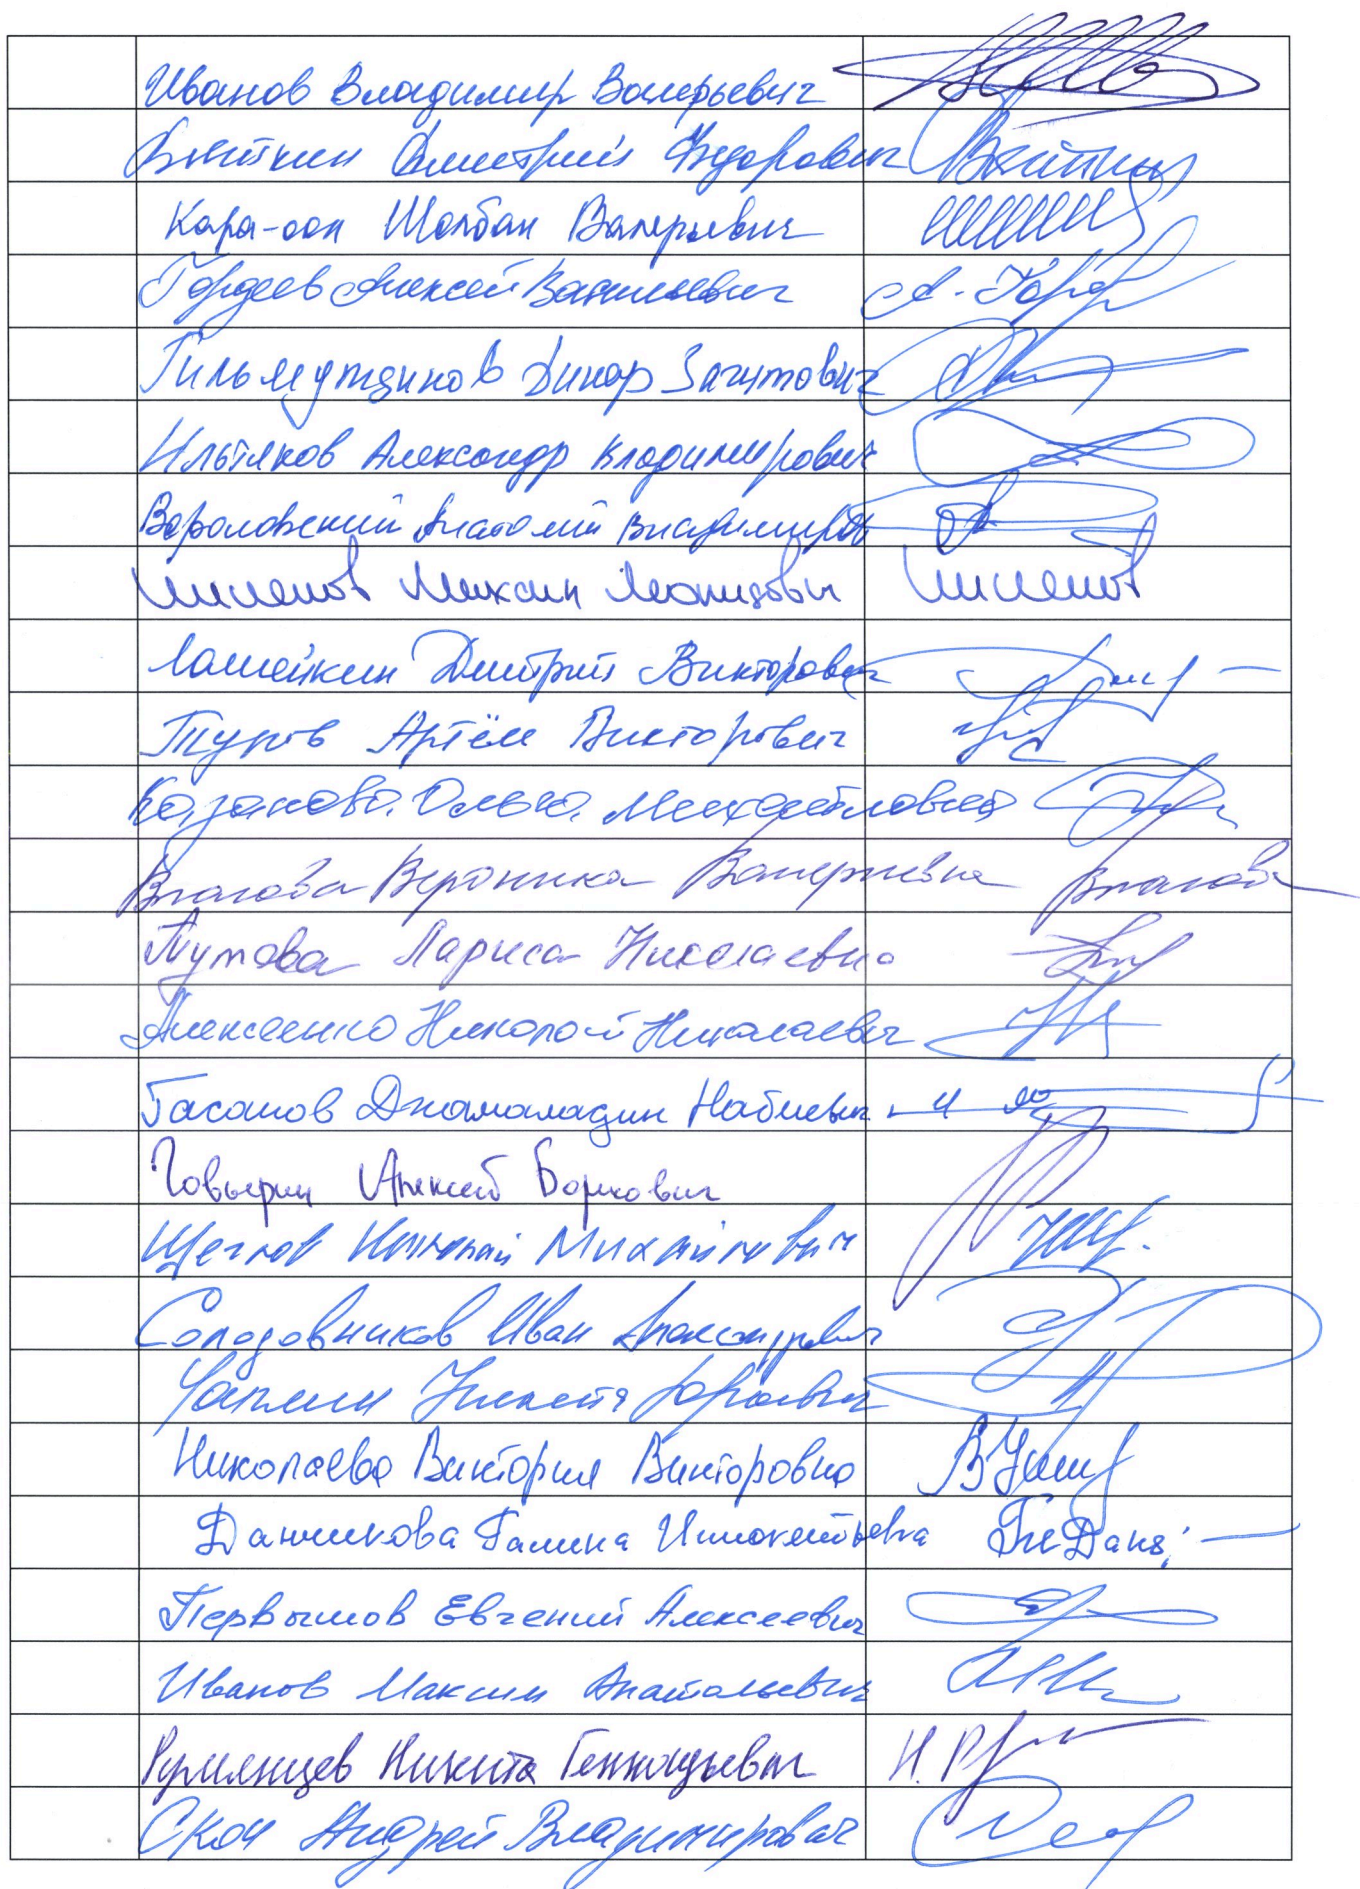 Иванов Владимир Валерьевич
Вяткин Дмитрий Федорович Вяткин
Кара-оол Шолбан Валерьевич
Гордеев Алексей Васильевич А. Горд
Гильмутдинов Динар Загитович
Ильтяков Александр Владимирович
Вороновский Анатолий Владимиров
Максим Леонидович
Ламейкин Дмитрий Викторович
Туров Артём Викторович
Казакова Ольга Михайловна
Власова Вероника Валерьевна Власова
Тутова Лариса Николаевна
Алексеенко Николай Николаевич
Гасанов Джамаладин Набиевич
Говырин Алексей Борисович
Щеглов Николай Михайлович
Солодовников Иван Александрович
Чаплин Никита Юрьевич
Николаева Виктория Викторовна
Данчикова Галина Иннокентьевна
Первышов Евгений Алексеевич
Иванов Максим Анатольевич
Румянцев Никита Геннадьевич
Скоч Андрей Владимирович